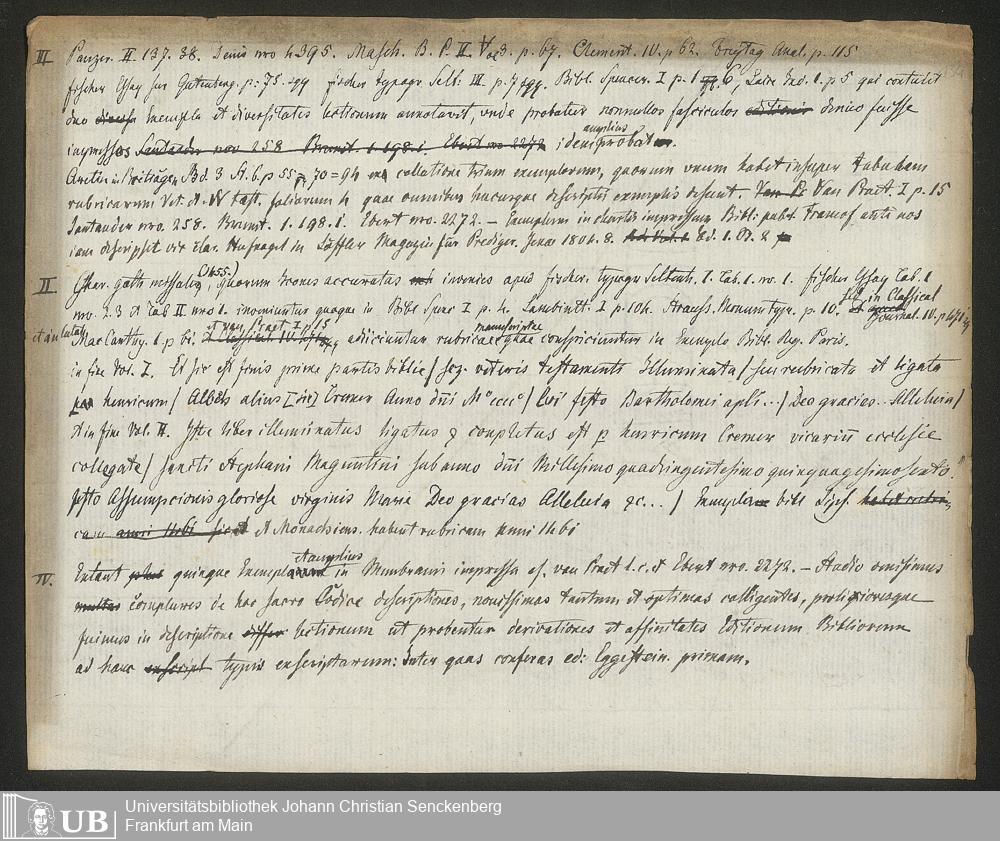 III Panzer. II. 137. 38. Denis nro 4395. Masch. B. P. II. V. 3. p. 67. Clement. IV. p 62. Freytag Anal. p. 115
fischer Essay sur Gutenberg. p: 75. sqq fischer typogr. Selt: III. p. 7 sqq. Bibl. Spencer. I p. 1 6, Laire Ind. 1. p 5 qui contulit
duo diversa Exempla et diversitates lectionum annotavit, unde probatur nonnullos fasciculos editionis denuo fuisse
impressos Santander nro 258 Brunet. 1. 198. 1. Ebert nro 2272 idem amplius probat
Aretin in Beiträgen Bd. 3 St. 6. p 55 70 = 94 collatione trium exemplarum, quorum unum habet insuper tabulam
rubricarum Vet. et N Test. foliorum 4 quae omnibus hucusque descriptis exemplis desunt. Van Praet. I p. 15
Santander nro. 258. Brunet. 1. 198. 1. Ebert nro. 2272. – Exemplum in chartis impressum Bibl: publ. Francof ante nos
iam descripsit vir clar. Hufnagel in Löffler Magazin für Prediger. Jena 1804. 8. Bd. 1. St. 2
II Char. goth missalis (1455.), quorum Icones accuratas invenies apud fischer. typogr Seltenh. 1. tab. 1. nr. 1. fischer Essay tab. 1
nro. 2. 3 et tab II nro 1. inveniuntur quoque in Bibl Spenc I p. 4. Lambinet. I p. 104. Strauss. Monum typ. p. 10. in Classical Journal. IV. p 471 sq
Mac Carthy. 1. p bi. et Van Praet. I p 15 adiiciuntur rubricae manuscriptae quae conspiciuntur in Exemplo Bibl. Reg. Paris.
in fine Vol. I. Et sic est finis prime partis biblie / seq. veteris testamenti Illuminata / seu rubricata et ligata
p henricum / Albch alius [sic] Cremer Anno dni M° cccc° / lvi festo Bartholomei apli .. / Deo gracias .. Alleluia /
et in fine Vol. II. Iste liber illuminatus ligatus & completus est p henricum Cremer vicariu ecclesie
collegate / sancti Stephani Maguntini sub anno dni Millesimo quadringentesimo quinquagesimo sexto
festo Assumpcionis gloriose virginis Marie Deo gracias Alleluia &c... / Exempla bibl Lips. habet rubri
cam anni 1461 sic et et Monachiens. habent rubricam anni 1461
IV. Extant quinque Exempla et amplius in Membranis impressa cf. van Praet l. c. et Ebert nro. 2272. – Studio omisimus
multas complures de hoc sacro Codice descriptiones, novissimas tantum et optimas colligentes, prolixioresque
fuimus in descriptione differ lectionum ut probentur derivationes et affinitates Editionum Bibliorum
ad hanc exscript typis exscriptarum: Inter quas conferas ed: Eggestein. primam.
UB Universitätsbibliothek Johann Christian Senckenberg
Frankfurt am Main